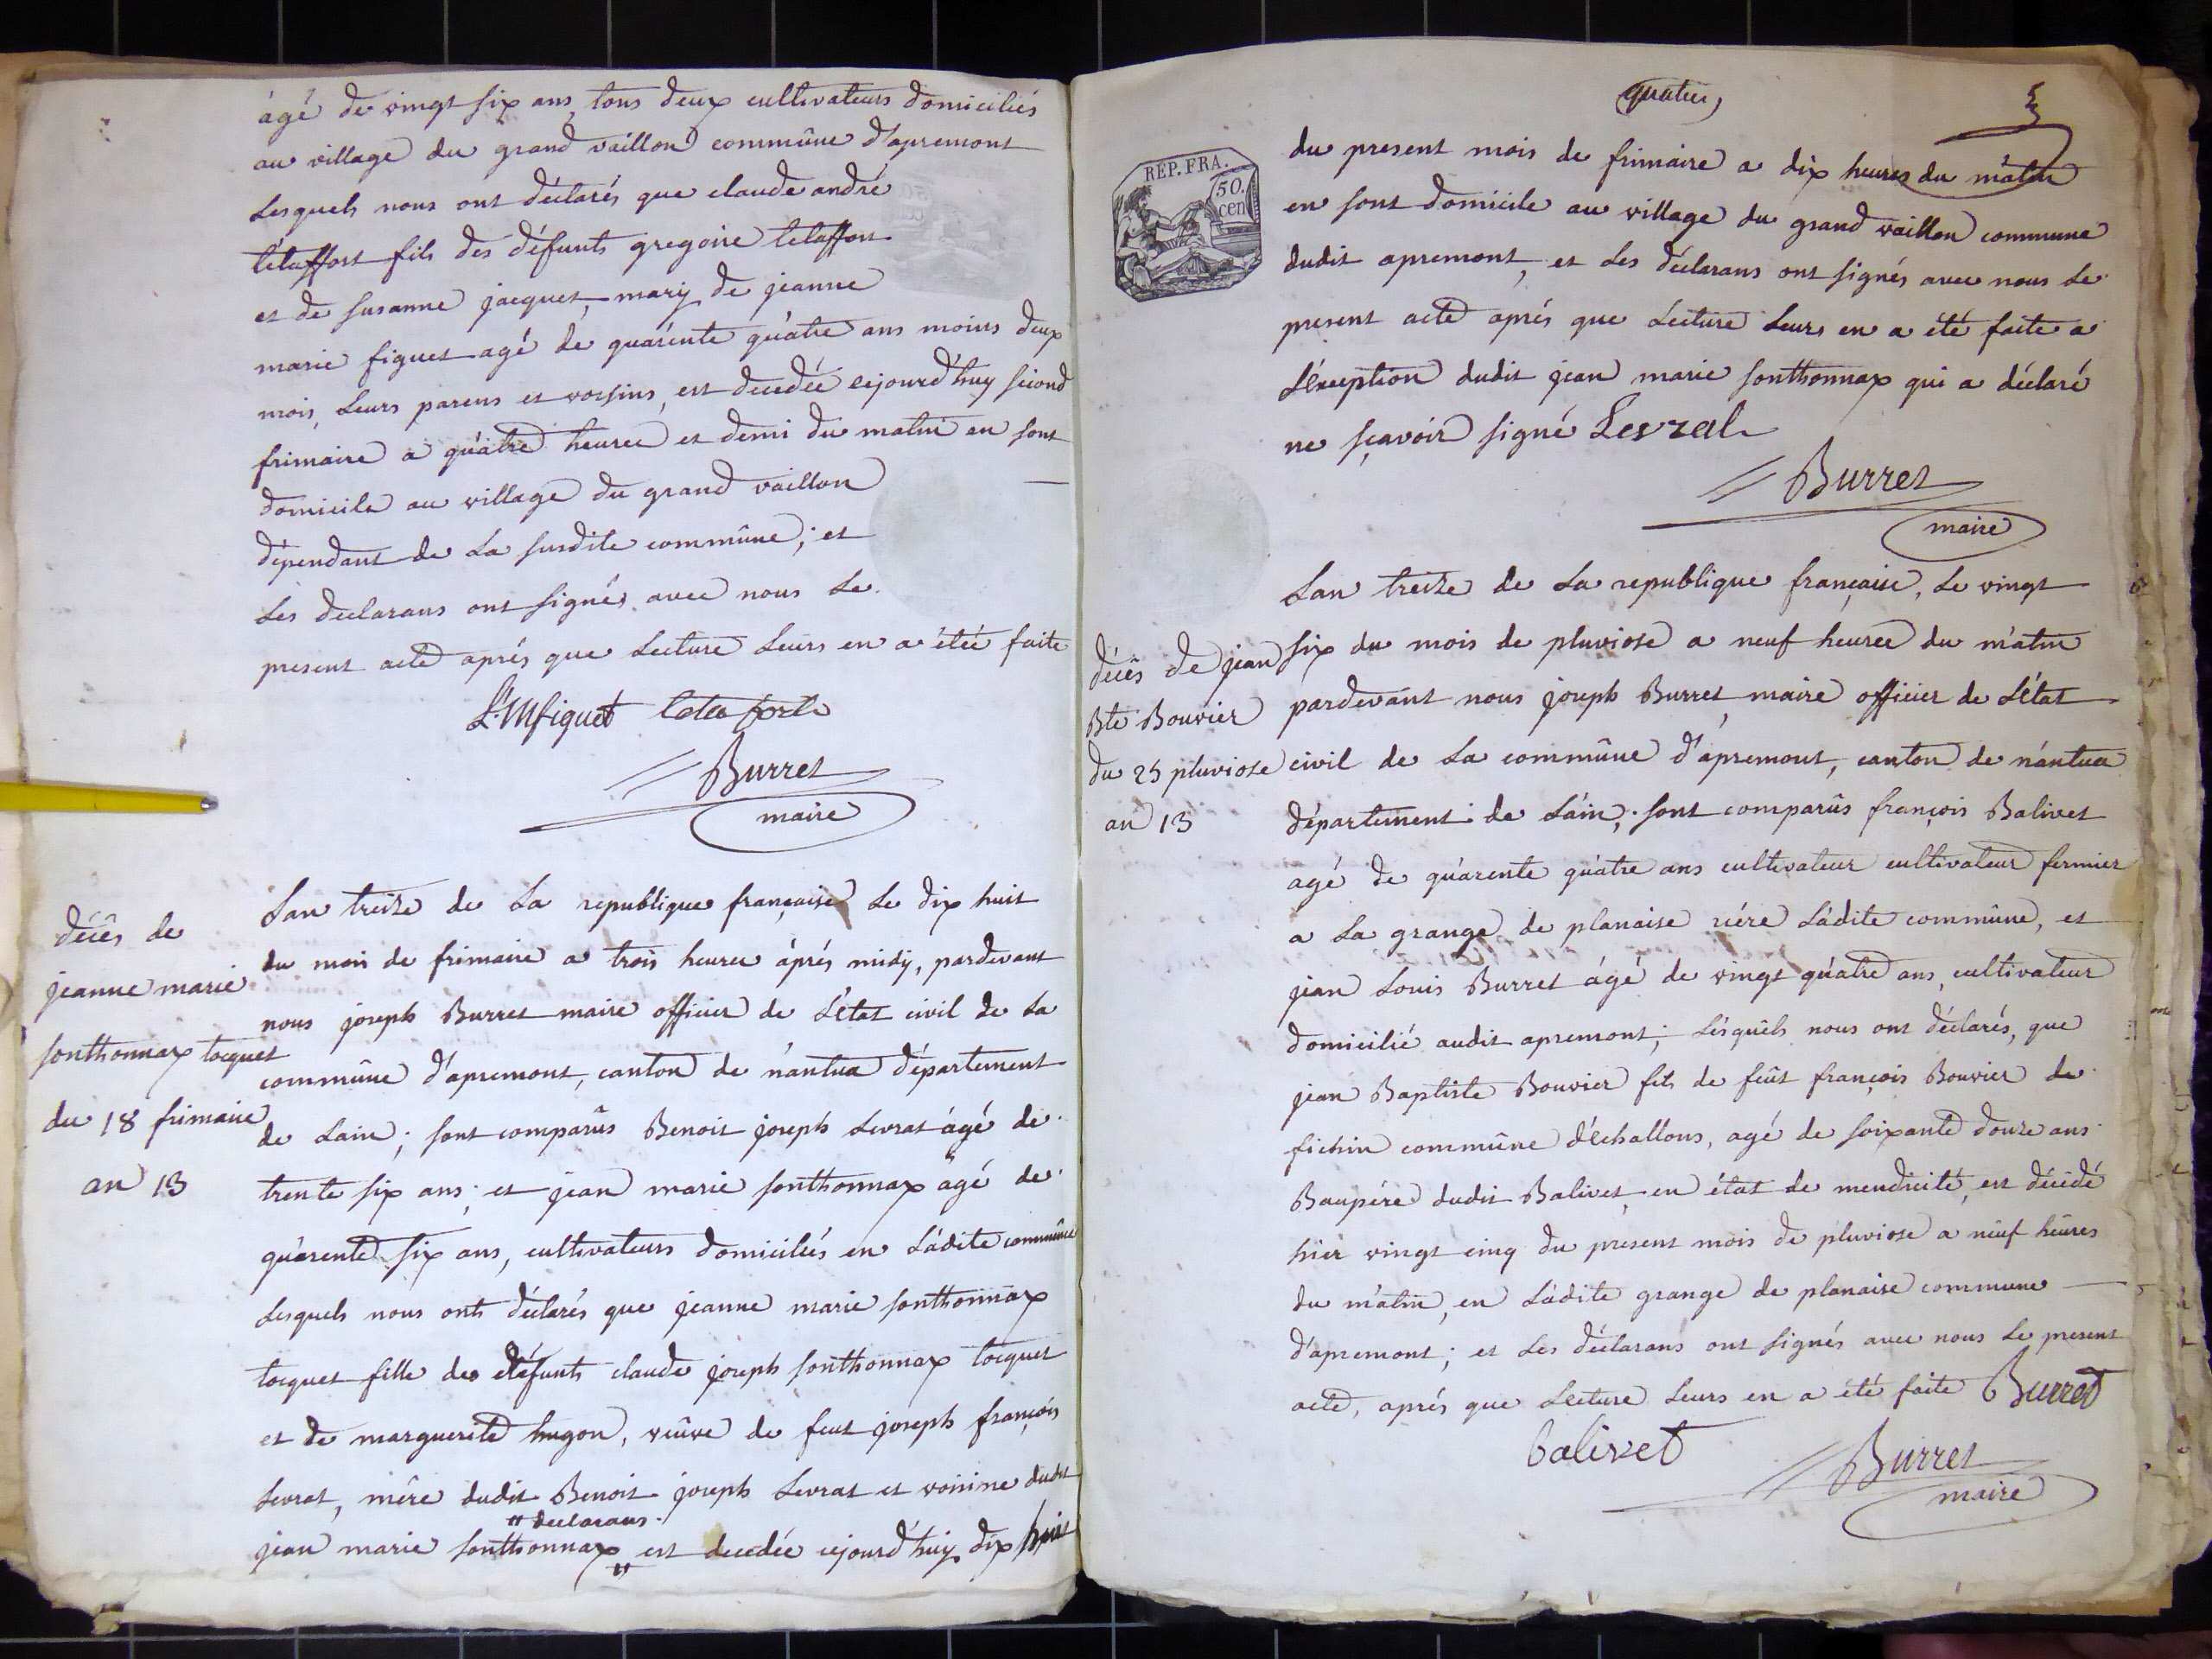 âgé de vingt six ans, tous deux cultivateurs domiciliés
au village du grand vaillon commûne d'apremont
Lesquels nous ont déclarés que claude andré
tétaffort fils des défunts gregoire tetaffort
et de susanne jacquet, mary de jeanne
marie figuet agé de quárente quátre ans moins deux
mois, Leurs parens et voisins, est decedée cejourd'huy second
frimaire a quátre heures et demi du matin en sont
domicile au village du grand vaillon
dépendant de La susdite commûne; et
Les declarans ont signés avec nous Le
present acte aprés que Lecture Leurs en a étée faite
L.Mfiguet
Burret
maire
décês de
jeanne marie
sonthonnax tocquet
du 18 frimaire
an 13
Lan treize de La republique française Le dix huit
du mois de frimaire a trois heures áprés midy, pardevant
nous joseph Burret maire officier de L'état civil de La
commûne d'apremont, canton de nántua département
de Lain; sont comparûs Benoit joseph Levrat ágé de
trente six ans; et jean marie sonthonnax âgé de
quárente six ans, cultivateurs domiciliés en Ládite commûne
Lesquels nous onts déclarés que jeanne marie sonthonnax
tocquet fille des défunts claude joseph sonthonnax tocquet
et de marguerite hugon, veûve de feut joseph françois
Levrat, mêre dudit Benoit joseph Levrat et voisine dudit
" declarans
jean marie sonthonnax " est decedée cejourd'huy dix huit
5
REP. FRA.
50.
cen
du present mois de frimaire a dix heures du mátin
en sont domicile au village du grand vaillon commune
dudit apremont, et Les déclarans ont signés avec nous Le
present acte aprés que Lecture Leurs en a été faite a
L'éxception dudit jean marie sonthonnax qui a déclaré
ne sçavoir signé Levrat
Burret
maire
décês de jean
Bte Bouvier
du 25 pluviose
an 13
Lan treize de La republique française, Le vingt
six du mois de pluviose a neuf heures du mátin
pardevant nous joseph Burret, maire officier de L'état
civil de La commûne d'apremont, canton de nántua
département de Láin; sont comparûs françois Balivet
agé de quárente quátre ans cultivateur cultivateur fermier
a La grange de planaise riére Ládite commûne, et
jean Louis Burret ágé de vingt quátre ans, cultivateur
domicilié audit apremont; Lésquêls nous ont déclarés, que
jean Baptiste Bouvier fils de feût françois Bouvier de
fichin commûne d'échallons, agé de soixante douze ans
Baupére dudit Balivet, en état de mendicité, est décédé
hier vingt cinq du present mois de pluviose a neuf heûres
du mátin, en Ládite grange de planaise commune
d'apremont; et Les déclarans ont signés avec nous Le present
acte, aprés que Lecture Leurs en a été faite Burret
balivet
Burret
maire